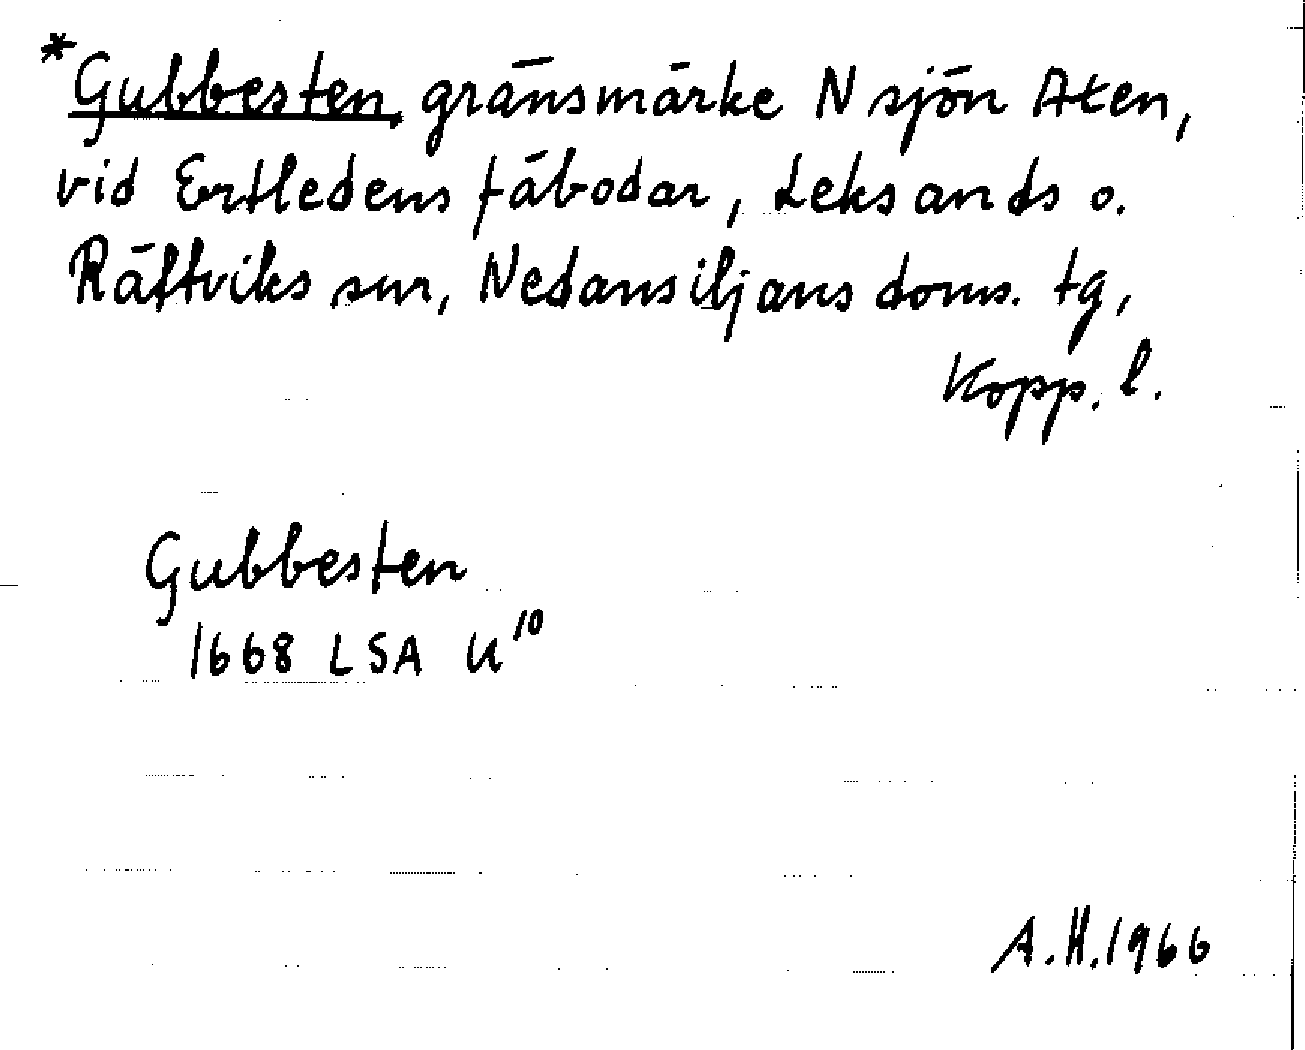 *Gubbesten, gränsmärke N sjön Aten,
vid Ertledens fäbodar, Leksands o.
Rättviks snr, Nedansiljans doms. tg,
Kopp. l.
Gubbesten
1668 LSA U¹⁰
A.H. 1966